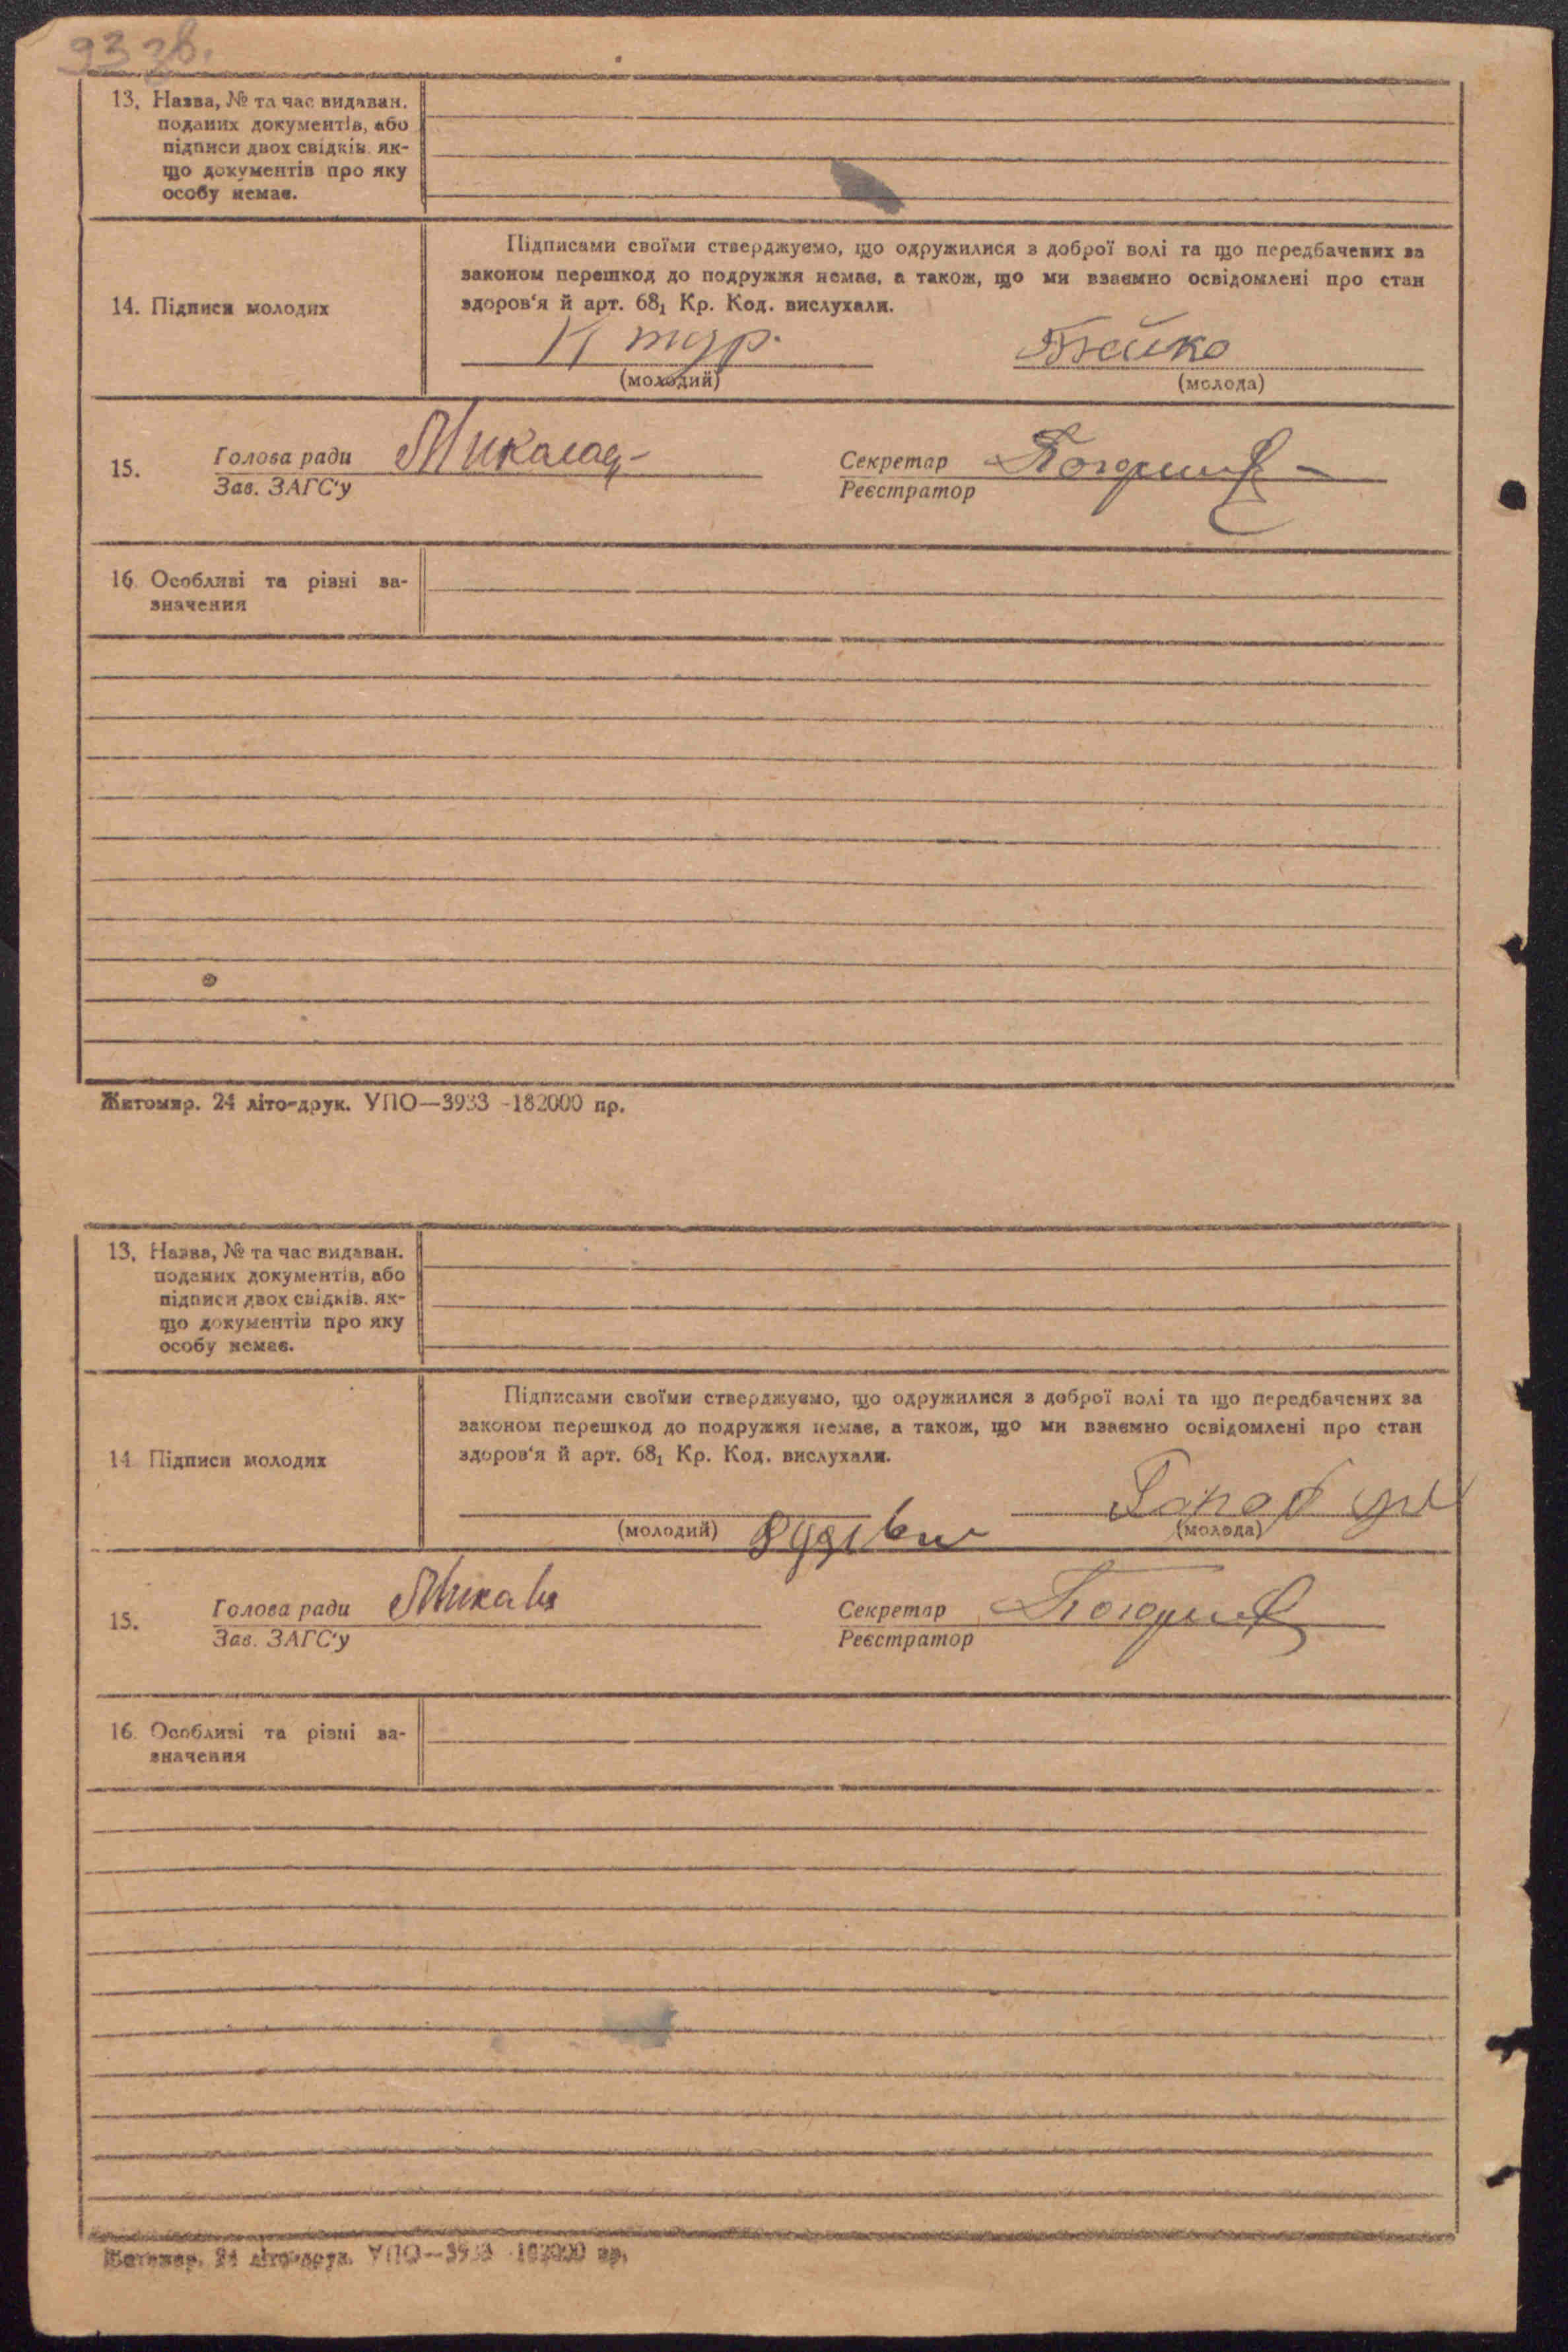 93 зв.
13. Назва, № та час видаван.
поданих документів, або
підписи двох свідків. як-
що документів про яку
особу немає.
Підписами своїми стверджуємо, що одружилися з доброї волі та що передбачених за
законом перешкод до подружжя немає, а також, що ми взаємно освідомлені про стан
здоров'я й арт. 68₁ Кр. Код. вислухали.
14. Підписи молодих
(молодий) (молода)
15. Голова ради Секретар
Зав. ЗАГС'у Реєстратор
16. Особливі та різні за-
значення
Житомир. 24 літо-друк. УПО—3933 -182000 пр.
13. Назва, № та час видаван.
поданих документів, або
підписи двох свідків. як-
що документів про яку
особу немає.
Підписами своїми стверджуємо, що одружилися з доброї волі та що передбачених за
законом перешкод до подружжя немає, а також, що ми взаємно освідомлені про стан
здоров'я й арт. 68₁ Кр. Код. вислухали.
14 Підписи молодих
(молодий) (молода)
15. Голова ради Секретар
Зав. ЗАГС'у Реєстратор
16. Особливі та різні за-
значення
Житомир. 24 літо-друк. УПО—3933 182000 пр.